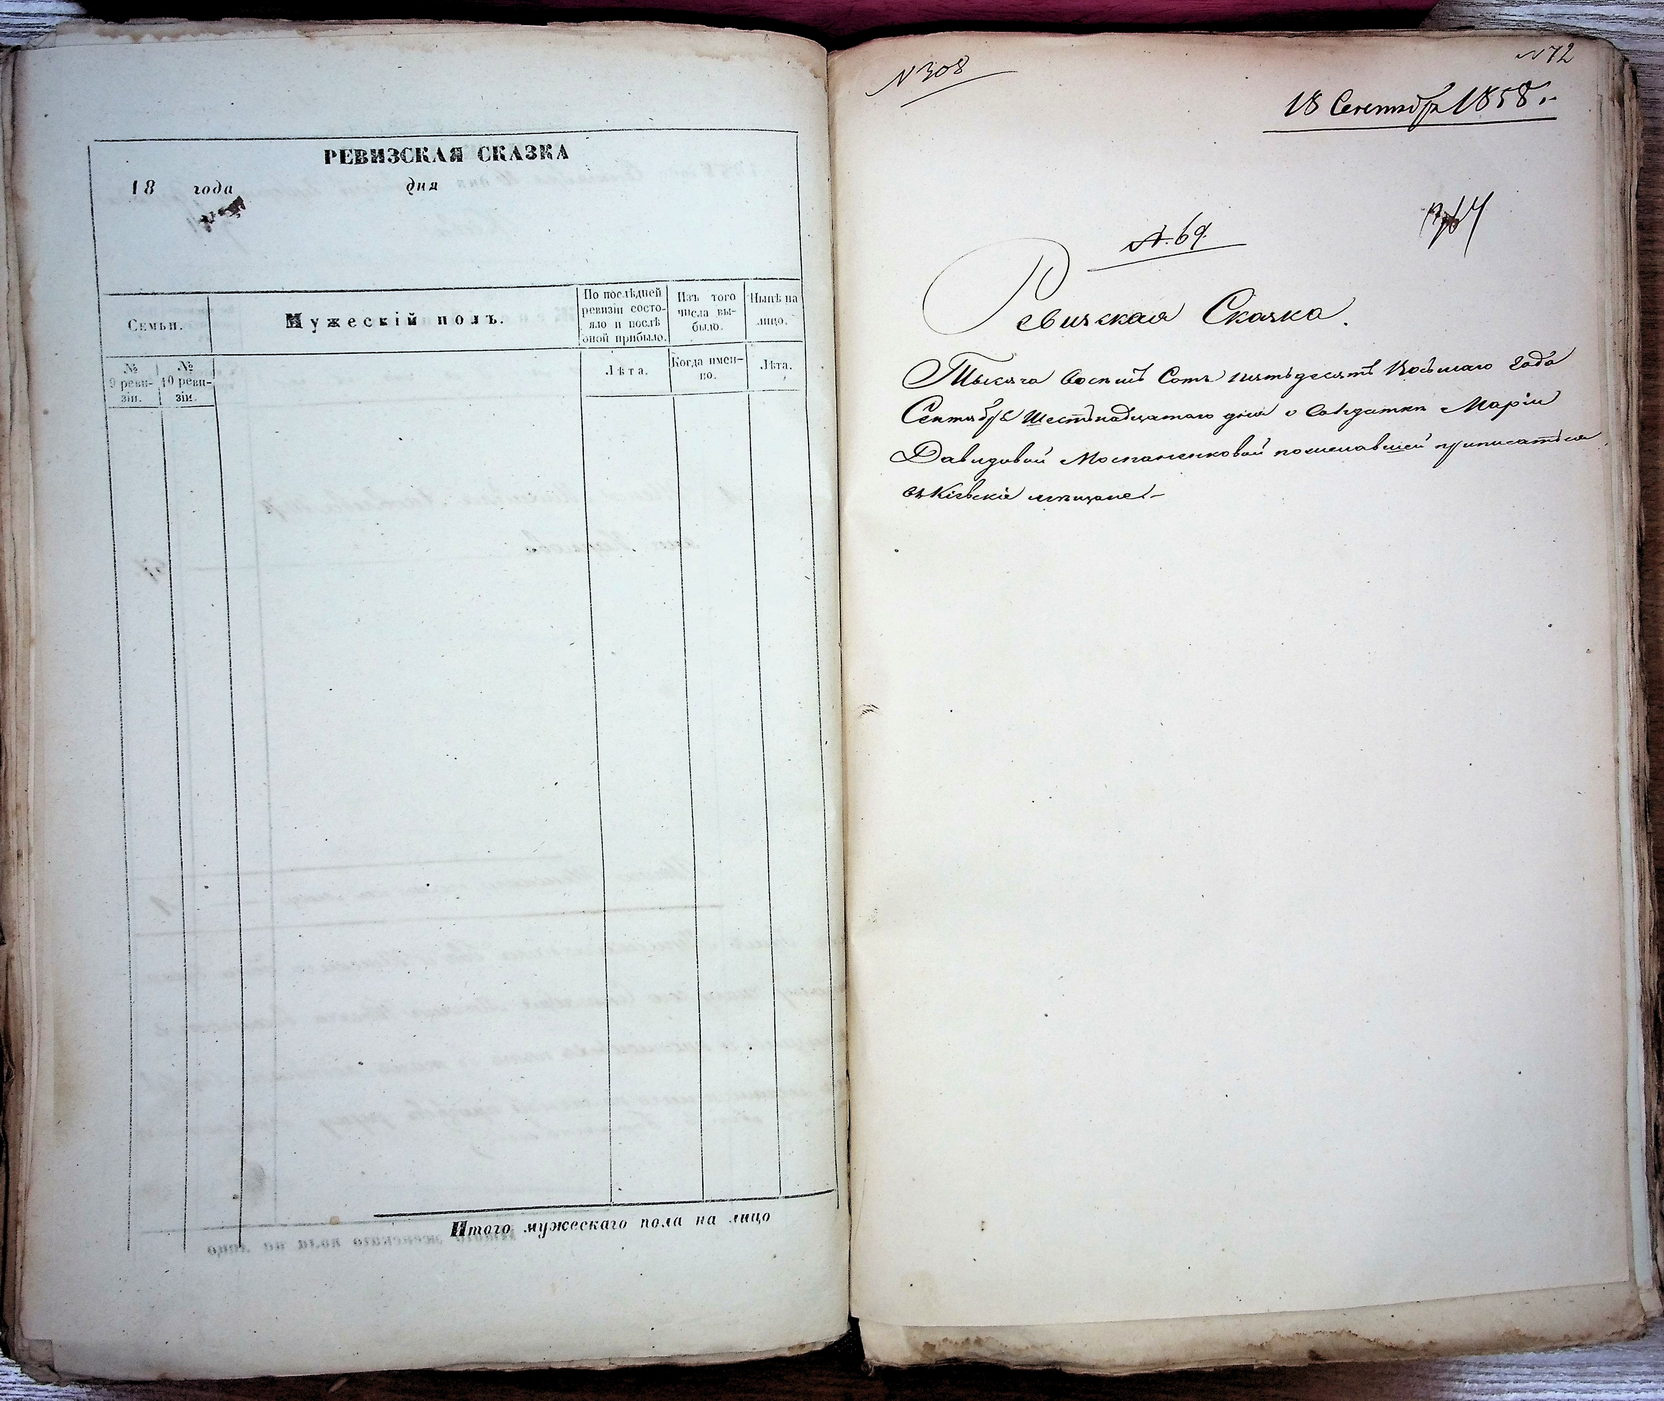 РЕВИЗСКАЯ СКАЗКА
18 года дня
Семьи.
Мужескій полъ.
По послѣдней ревизіи состояло и послѣ оной прибыло.
Изъ того числа выбыло.
Нынѣ на лицо.
№ 9 ревизіи.
№ 10 ревизіи.
Лѣта.
Когда именно.
Лѣта.
Итого мужескаго пола на лицо
N 308
18 Сентября 1858 г.
№. 69.
Ревизская Сказка.
Тысяча восемь сотъ пятьдесятъ восьмаго года
Сентября Шестнадцатаго дня о солдатки Маріи
Давидовой Моспаненковой пожелавшей приписаться
въ Кіевскіе мещане.